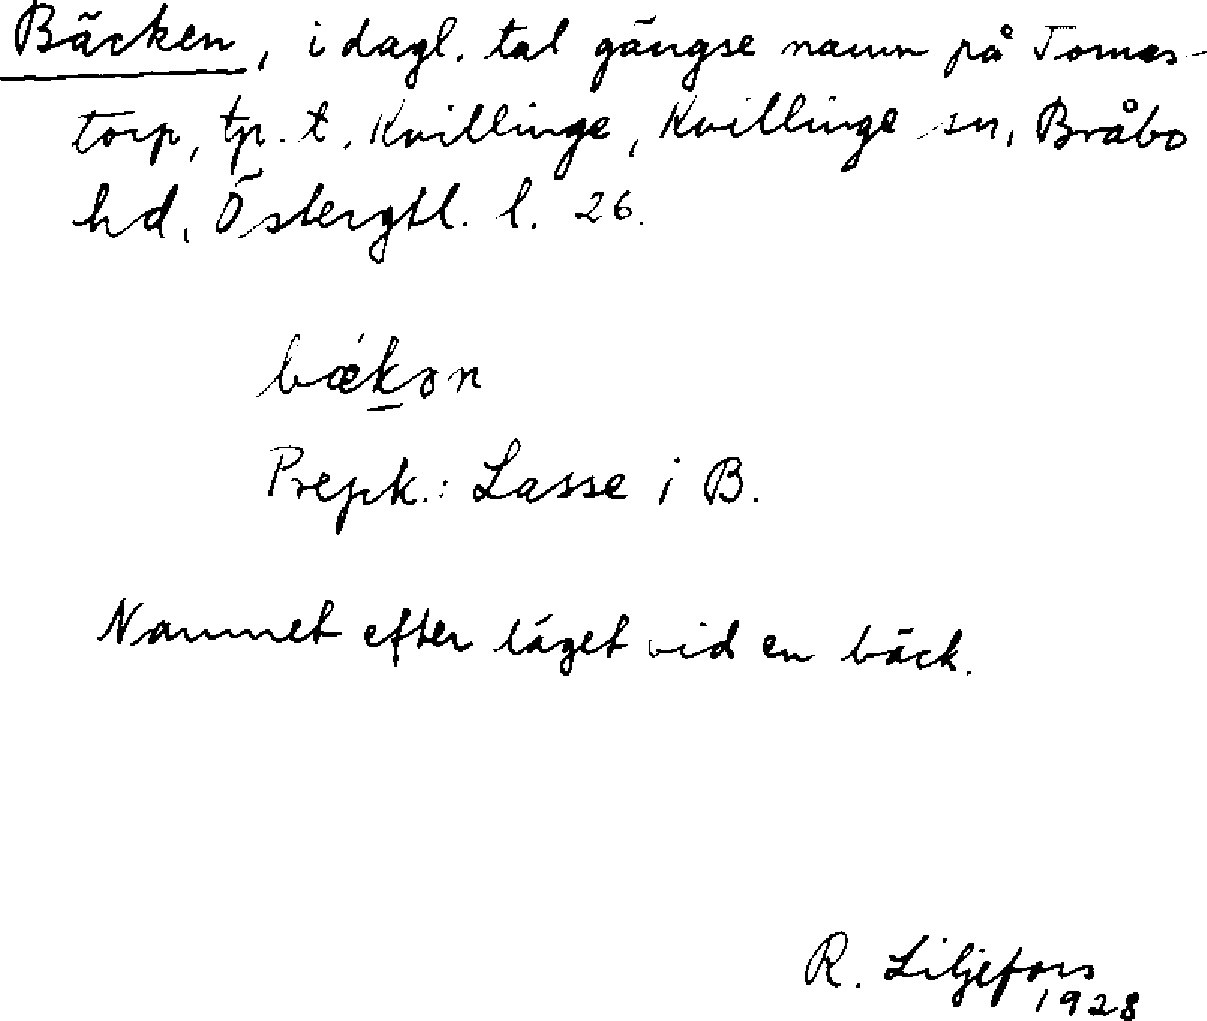 Bäcken, i dagl. tal gängse namn på Tomas-
torp, tp. t. Kvillinge, Kvillinge sn, Bråbo
hd, Östergtl. l. 26.
bǽk̲ən
Prepk.: Lasse i B.
Namnet efter läget vid en bäck.
R. Liljefors
1928